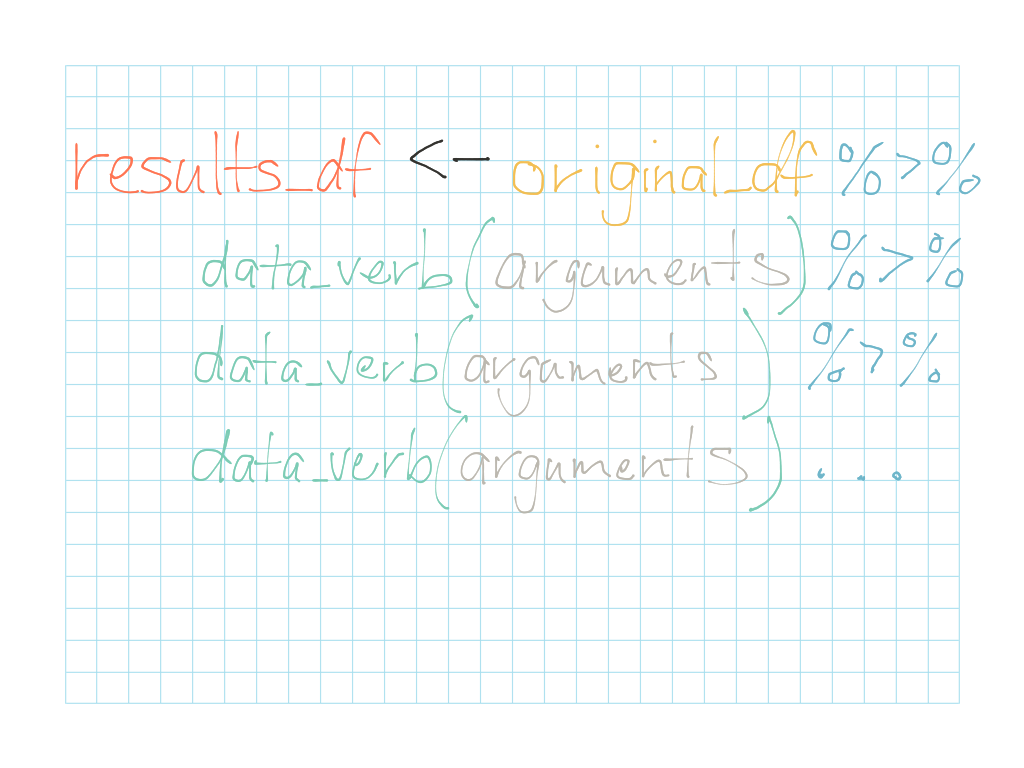 results_df <- original_df %>%
data_verb(arguments) %>%
data_verb(arguments) %>%
data_verb(arguments) ...